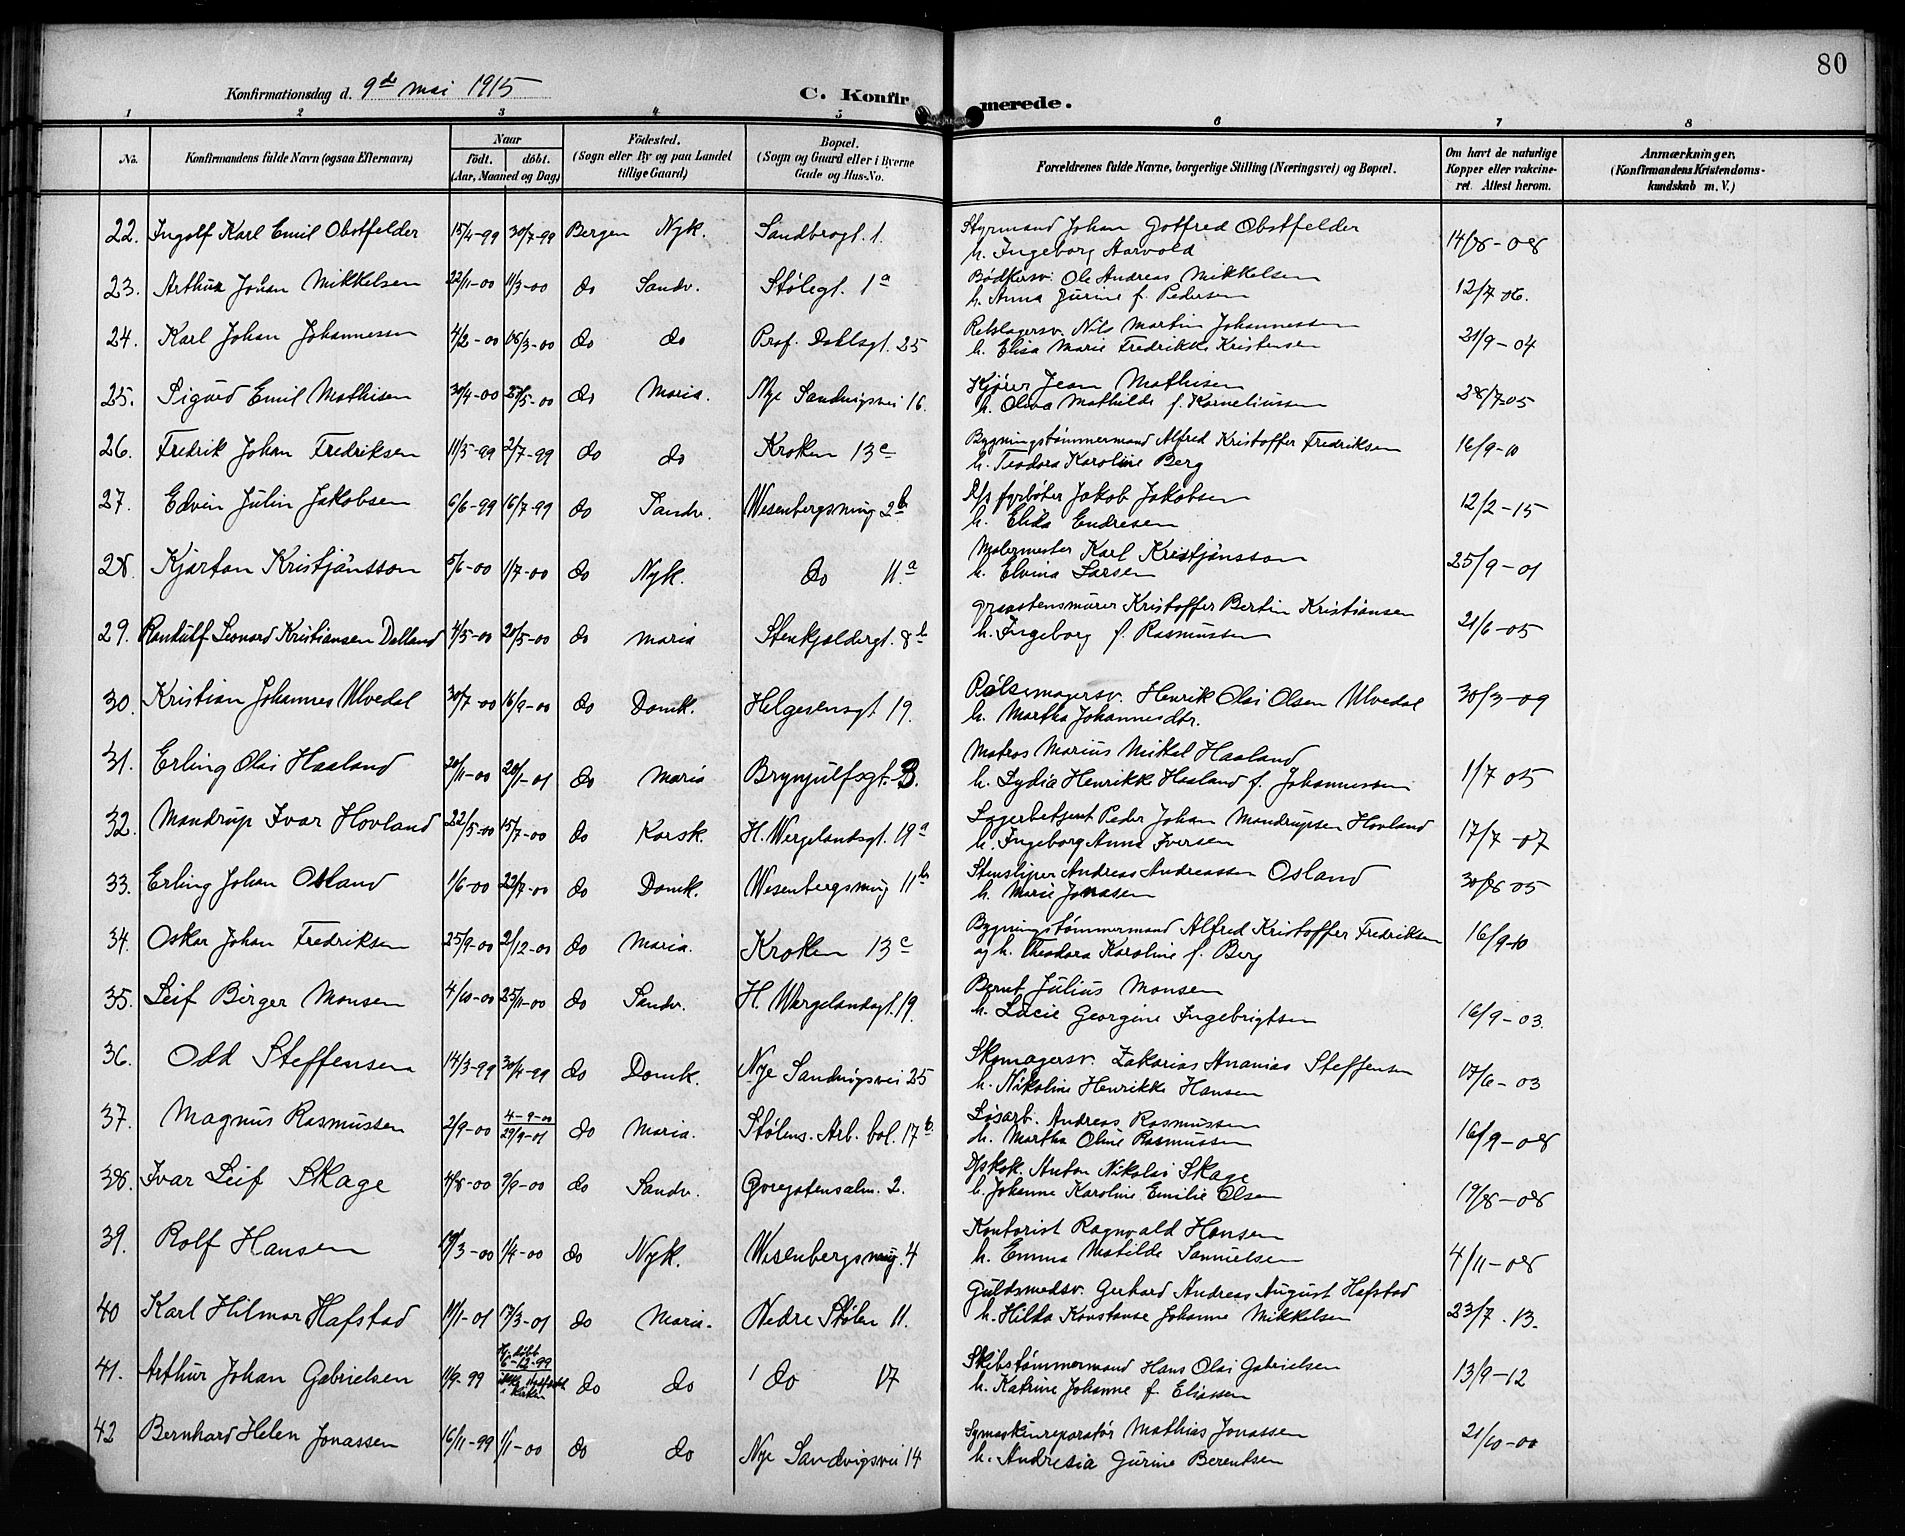 80
Konfirmationsdag d. 9de mai 1915 C. Konfirmerede.
1 2 3 4 5 6 7 8
No. Konfirmandens fulde Navn (ogsaa Efternavn) Naar födt. döbt. (Aar, Maaned og Dag) Födested. (Sogn eller By og paa Landet tillige Gaard) Bopæl. (Sogn og Gaard eller i Byerne Gade og Hus-No. Forældrenes fulde Navne, borgerlige Stilling (Næringsvei) og Bopæl. Om havt de naturlige Kopper eller vakcineret. Attest herom. Anmærkninger. (Konfirmandens Kristendomskundskab m. V.)
22. Ingolf Karl Emil Obstfelder 15/4-99 30/7-99 Bergen Nyk. Sandbrogt. 1. Styrmand Johan Gotfred Obstfelder 14/8-08
h. Ingeborg Aarvold
23. Arthur Johan Mikkelsen 22/11-00 11/3-00 do Sandv. Stølegt. 1a Bødkersv. Ole Andreas Mikkelsen 12/7 06.
h. Anna Jurine f. Pedersen
24. Karl Johan Johannessen 4/2-00 18/3-00 do do Prof. Dahlsgt. 25 Rebslagersv. Nils Martin Johannessen 21/9-04
h. Elisa Marie Fredrikke Kristensen
25. Sigurd Emil Mathisen 30/4-00 27/5-00 do Maria. Nye Sandvigsvei 16. Kjører Jean Mathisen 28/7-05
h. Oliva Mathilde f. Korneliussen
26. Fredrik Johan Fredriksen 11/5-99 2/7-99 do do Kroken 13c Bygningstømmermand Alfred Kristoffer Fredriksen 16/9-10
h. Teodora Karoline Berg
27. Edvin Julin Jakobsen 6/6-99 16/7-99 do Sandv. Wesenbergsmug 2b D/s fyrbøter Jakob Jakobsen 12/2-15
h. Elida Endresen
28. Kjartan Kristjánsson 5/6-00 1/7-00 do Nyk. do 11.a Malermester Karl Kristjánsson 25/9-01
h. Elvina Larsen
29. Randulf Leonard Kristiansen Dalland 4/5-00 20/5-00 do Maria Stenkjældergt. 8b Graastensmurer Kristoffer Bertin Kristiansen 21/6-05
h. Ingeborg f. Rasmussen
30. Kristian Johannes Ulvedal 30/7-00 16/9-00 do Domk. Helgesensgt 19. Pølsemagersv. Henrik Olai Olsen Ulvedal 30/3-09
h. Martha Johannesdtr.
31. Erling Olai Haaland 20/11-00 20/1-01 do Maria Brynjulfsgt. 3. Matros Marius Mikal Haaland 1/7 05
h. Lydia Henrikke Haaland f. Johannessen
32. Mandrup Ivar Hovland 22/5-00 15/7-00 do Korsk. H. Wergelandsgt. 19a Lagerbetjent Peder Johan Mandrupsen Hovland 17/7-07
h. Ingeborg Anna Iversen
33. Erling Johan Osland 1/6-00 22/7-00 do Domk. Wesenbergsmug 11b Stensliper Andreas Andreassen Osland 30/8 05
h. Marie Jonasen
34. Oskar Johan Fredriksen 25/9-00 2/12-00 do Maria. Kroken 13c Bygningstømmermand Alfred Kristoffer Fredriksen 16/9-10
og h. Theodora Karoline f. Berg
35. Leif Birger Monsen 4/10-00 25/11-00 do Sandv. H. Wergelandsgt. 19. Bernt Julius Monsen 16/9-03.
h. Lucie Georgine Ingebrigtsen
36. Odd Steffensen 14/3-99 30/4-99 do Domk. Nye Sandvigsvei 25 Skomagersv. Zakarias Ananias Steffensen 17/6-03
h. Nikoline Henrikke Hansen
37. Magnus Rasmussen 2/9-00 4-9-00 29/9-01 do Maria. Stølens. Arb. bol. 17b Løsarb. Andreas Rasmussen 16/9-08
h. Martha Oline Rasmussen
38. Ivar Leif Skage 4/8-00 9/6-00 do Sandv. Øvregatensalm. 2. D/s kok. Anton Nikolai Skage 19/8-08
h. Johanne Karoline Emilie Olsen
39. Rolf Hansen 17/3-00 1/4-00 do Nyk. Wesenbergsmug. 4 Kontorist Ragnvald Hansen 4/11-08
h. Emma Matilde Samuelsen
40 Karl Hilmar Hafstad 11/1-01 17/3-01 do Maria. Nedre Stølen 11. Guldsmedsv. Gerhard Andreas August Hafstad 23/7.13.
h. Hilda Konstanse Johanne Mikkelsen
41. Arthur Johan Gabrielsen 11/9.99 Hj. døbt 6-12-99 do do do 17 Skibstømmermand Hans Olai Gabrielsen 13/9-12
h. Katrine Johanne f. Eliassen
42 Bernhard Helen Jonassen 16/11-99 1/1-00 do do Nye Sandvigsvei 14 Symaskinreparatør Mathias Jonassen 21/10-00
h. Andresia Jurine Berentsen